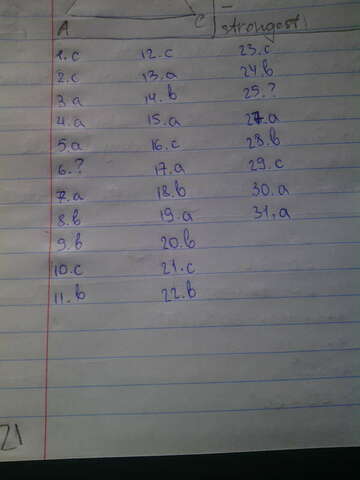 A C strongest.
1. c
2. c
3. a
4. a
5. a
6. ?
7. a
8. b
9. b
10. c
11. b
12. c
13. a
14. b
15. a
16. c
17. a
18. b
19. a
20. b
21. c
22. b
23. c
24. b
25. ?
27. a
28. b
29. c
30. a
31. a
21